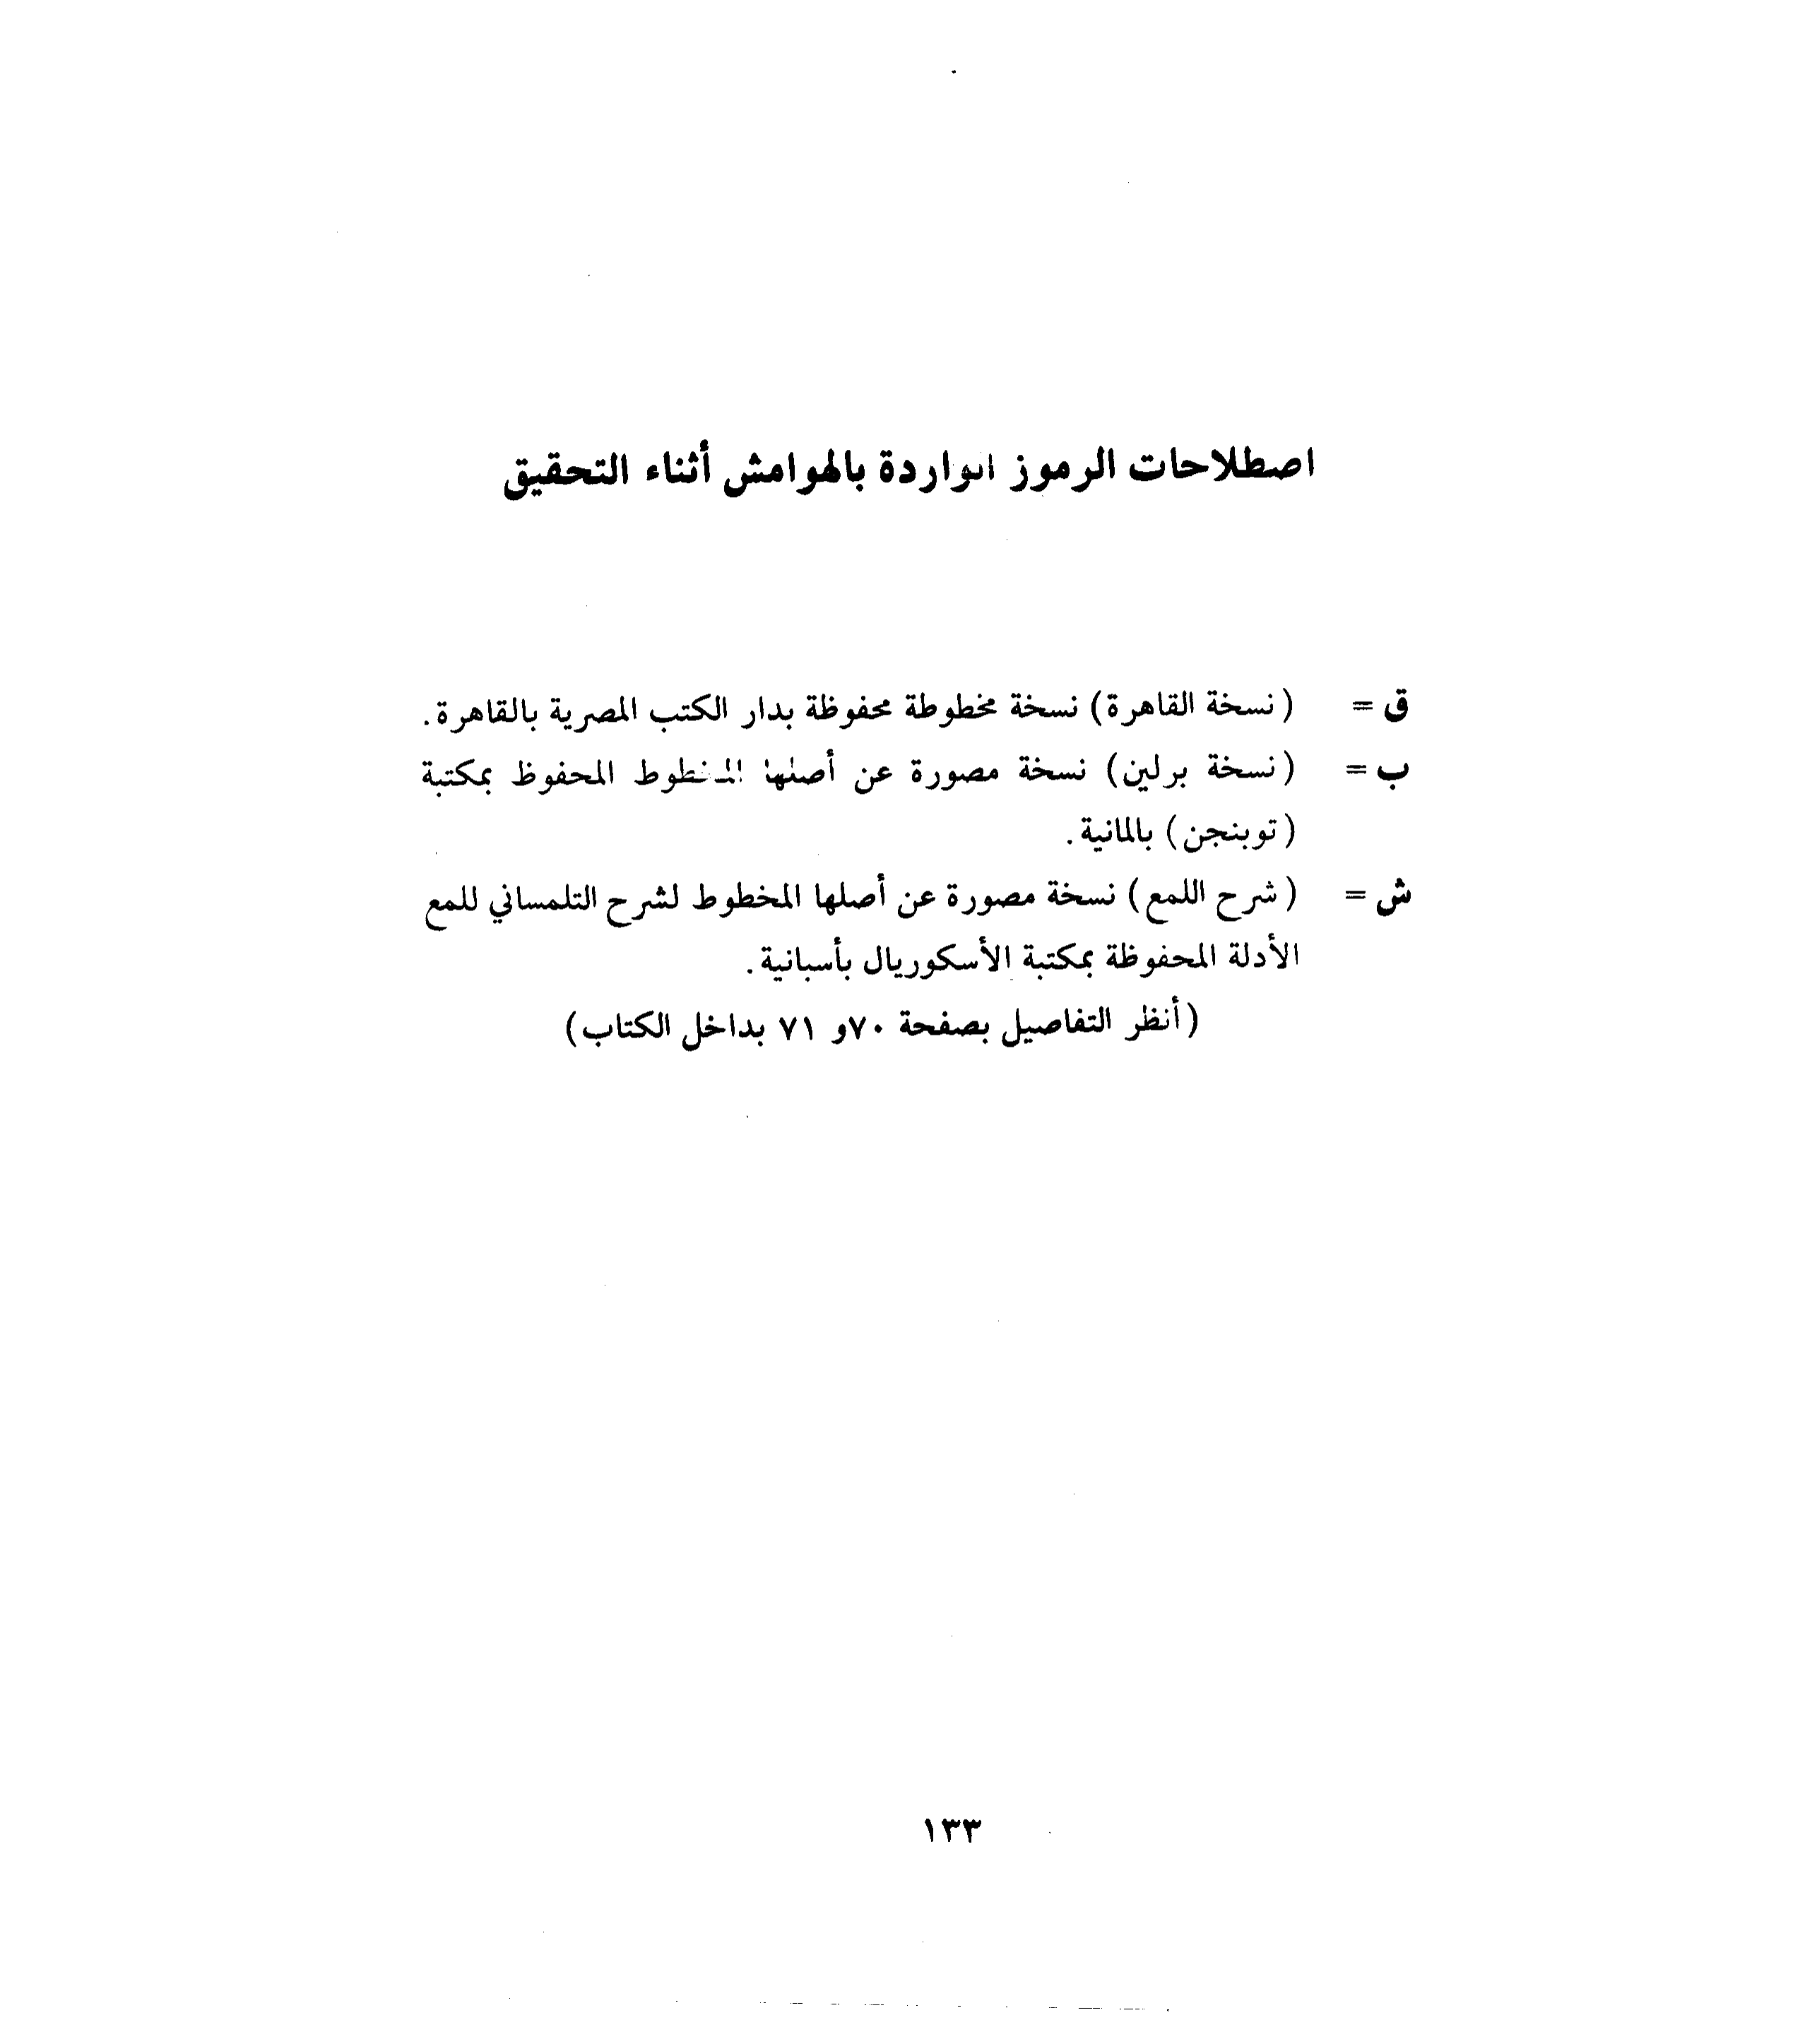 اصطلاحات الرموز الواردة بالهوامش أثناء التحقيق
ق = (نسخة القاهرة) نسخة مخطوطة محفوظة بدار الكتب المصرية بالقاهرة.
ب = (نسخة برلين) نسخة مصورة عن أصلها المخطوط المحفوظ بمكتبة
(توبنجن) بالمانية.
ش = (شرح اللمع) نسخة مصورة عن أصلها المخطوط لشرح التلمساني للمع
الأدلة المحفوظة بمكتبة الأسكوريال بأسبانية.
(أنظر التفاصيل بصفحة ٧٠و ٧١ بداخل الكتاب)
١٣٣